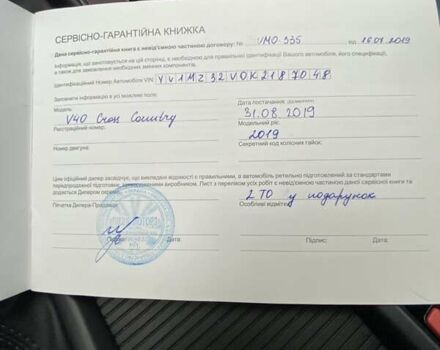 СЕРВІСНО-ГАРАНТІЙНА КНИЖКА
Дана сервісно-гарантійна книга є невід'ємною частиною договору: № VMO 335 від 16.07.2019
Інформація, що занотовується на цій сторінці, є необхідною для правильної ідентифікації Вашого автомобіля, його специфікації,
а також для замовлення необхідних змінних компонентів.
Ідентифікаційний Номер Автомобіля VIN YV1MZ32V0K2187048
Заповнити інформацію в усі можливі поля:
Модель: Дата постачання:
V40 Cross Country 31.08.2019
Реєстраційний номер: Модельний рік:
2019
Номер двигуна: Секретний код колісних гайок:
Цим офіційний дилер засвідчує, що викладені відомості є правильними, а автомобіль ретельно підготовлений за стандартами
передпродажної підготовки, виробником. Лист з переліком усіх робіт є невід'ємною частиною даної сервісної книги та
додається Дилером окремо.
2 ТО у подарунок
Печатка Дилера-Продавця: Особливі відмітки:
Дата: Підпис: Дата: